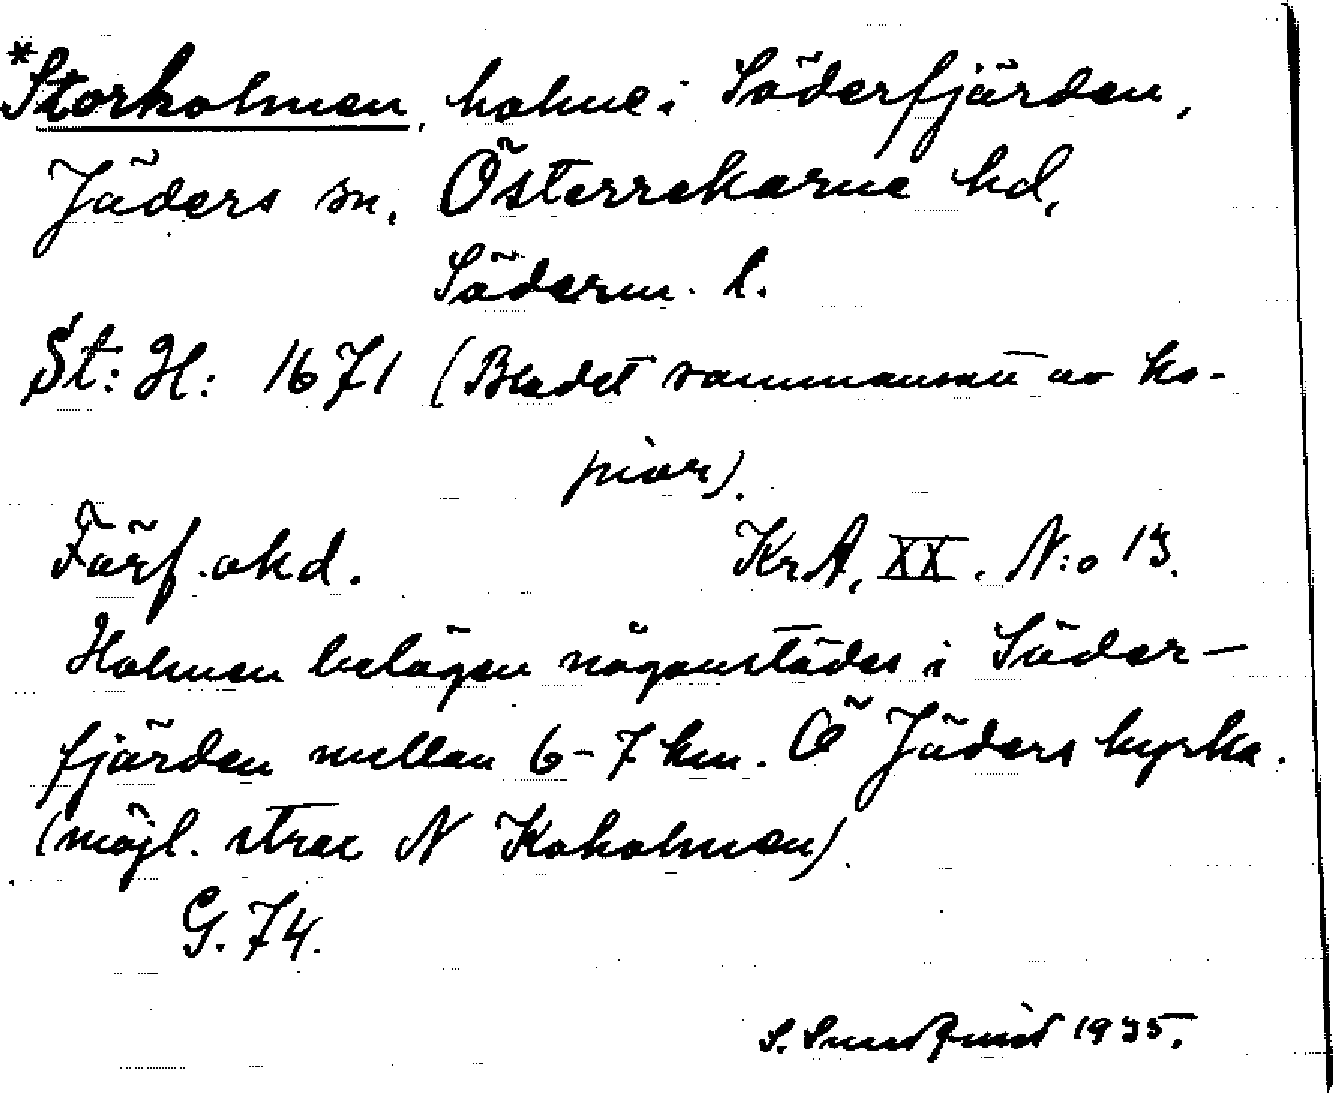 *Storholmen, holme i Söderfjärden,
Jäders sn, Österrekarne hd,
Söderm. l.
St: H: 1671 (Bladet sammansatt av ko-
pior).
Förf. okd. KrA, XX. N:o 13.
Holmen belägen någonstädes i Söder-
fjärden mellan 6-7 km. Ö Jäders kyrka.
(möjl. strax N Koholmen).
G. 74.
S. Sundqvist 1935.